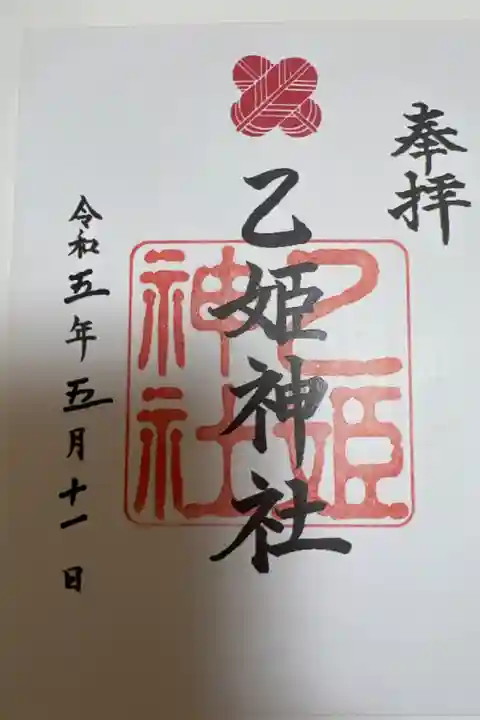 奉拝
乙姫神社
乙姫
神社
令和五年五月十一日